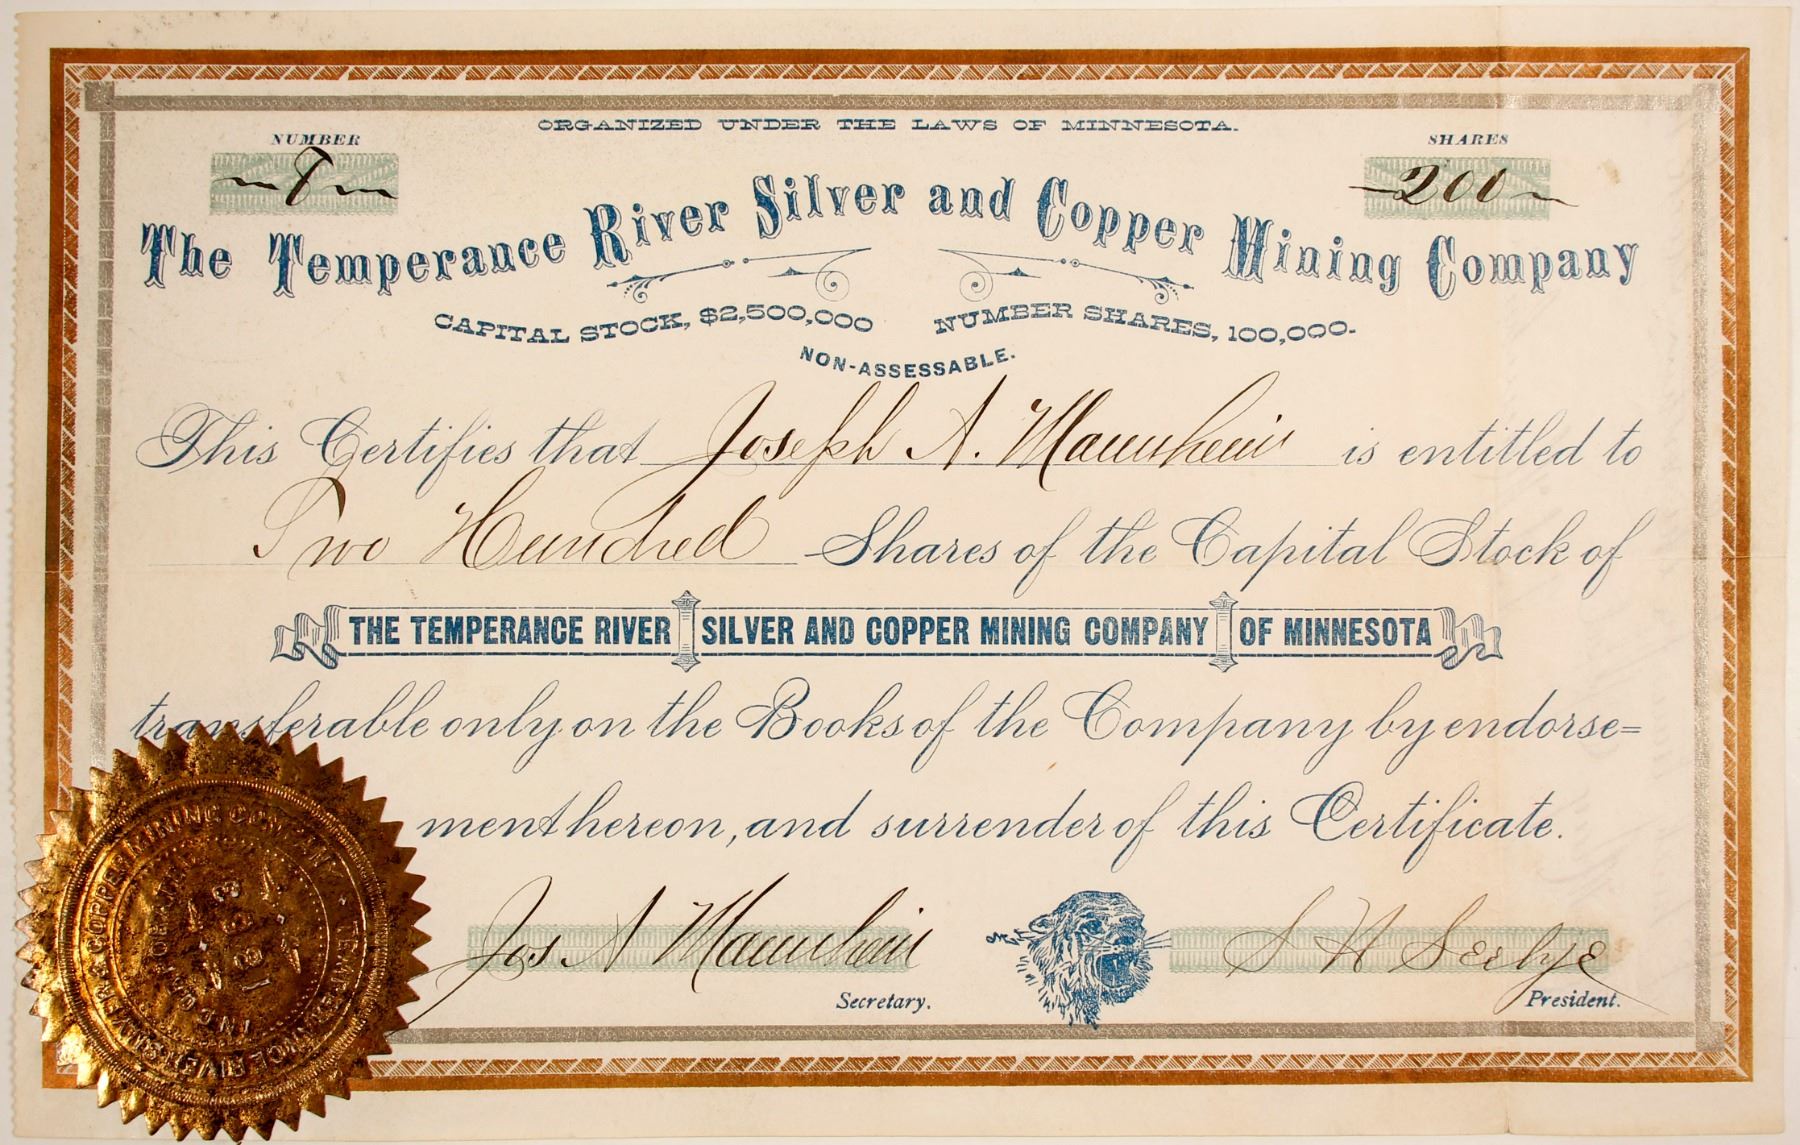 ORGANIZED UNDER THE LAWS OF MINNESOTA.
NUMBER
8
SHARES
200
The Temperance River Silver and Copper Mining Company
CAPITAL STOCK, $2,500,000 NUMBER SHARES, 100,000.
NON-ASSESSABLE.
This Certifies that Joseph A. Mannheim is entitled to
Two Hundred Shares of the Capital Stock of
THE TEMPERANCE RIVER SILVER AND COPPER MINING COMPANY OF MINNESOTA
transferable only on the Books of the Company by endorse=
ment hereon, and surrender of this Certificate.
Jos A Mannheim
Secretary.
S H Seelye
President.
TEMPERANCE RIVER SILVER & COPPER MINING COMPANY